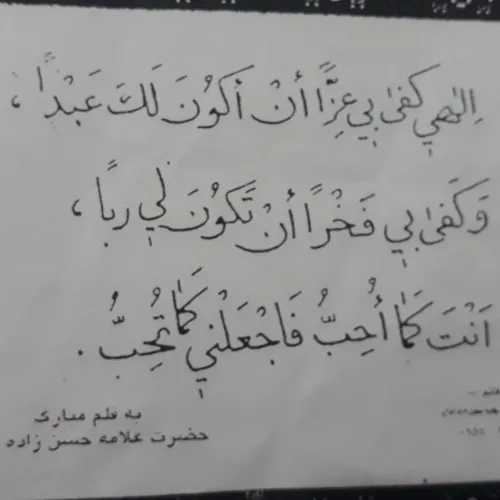 اِلٰهي كَفىٰ بي عِزًّا أَنْ أَكُونَ لَكَ عَبْدًا ،
وَ كَفىٰ بي فَخْرًا أَنْ تَكُونَ لي ربًا ،
اَنْتَ كَمٰا أُحِبُّ فَاجْعَلْني كَمٰا تُحِبُّ .
به قلم مبارک
حضرت علامه حسن زاده